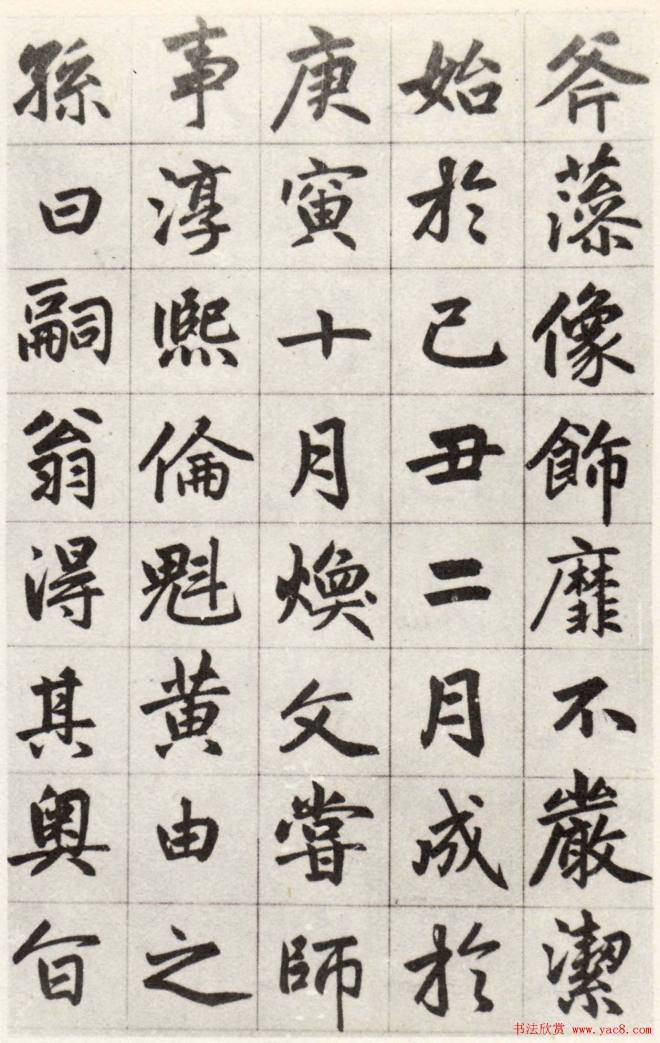 斧藻像飾靡不嚴潔
始於己丑二月成於
庚寅十月煥文嘗師
事淳熙倫魁黄由之
孫曰嗣翁得其奥旨
书法欣赏 www.yac8.com